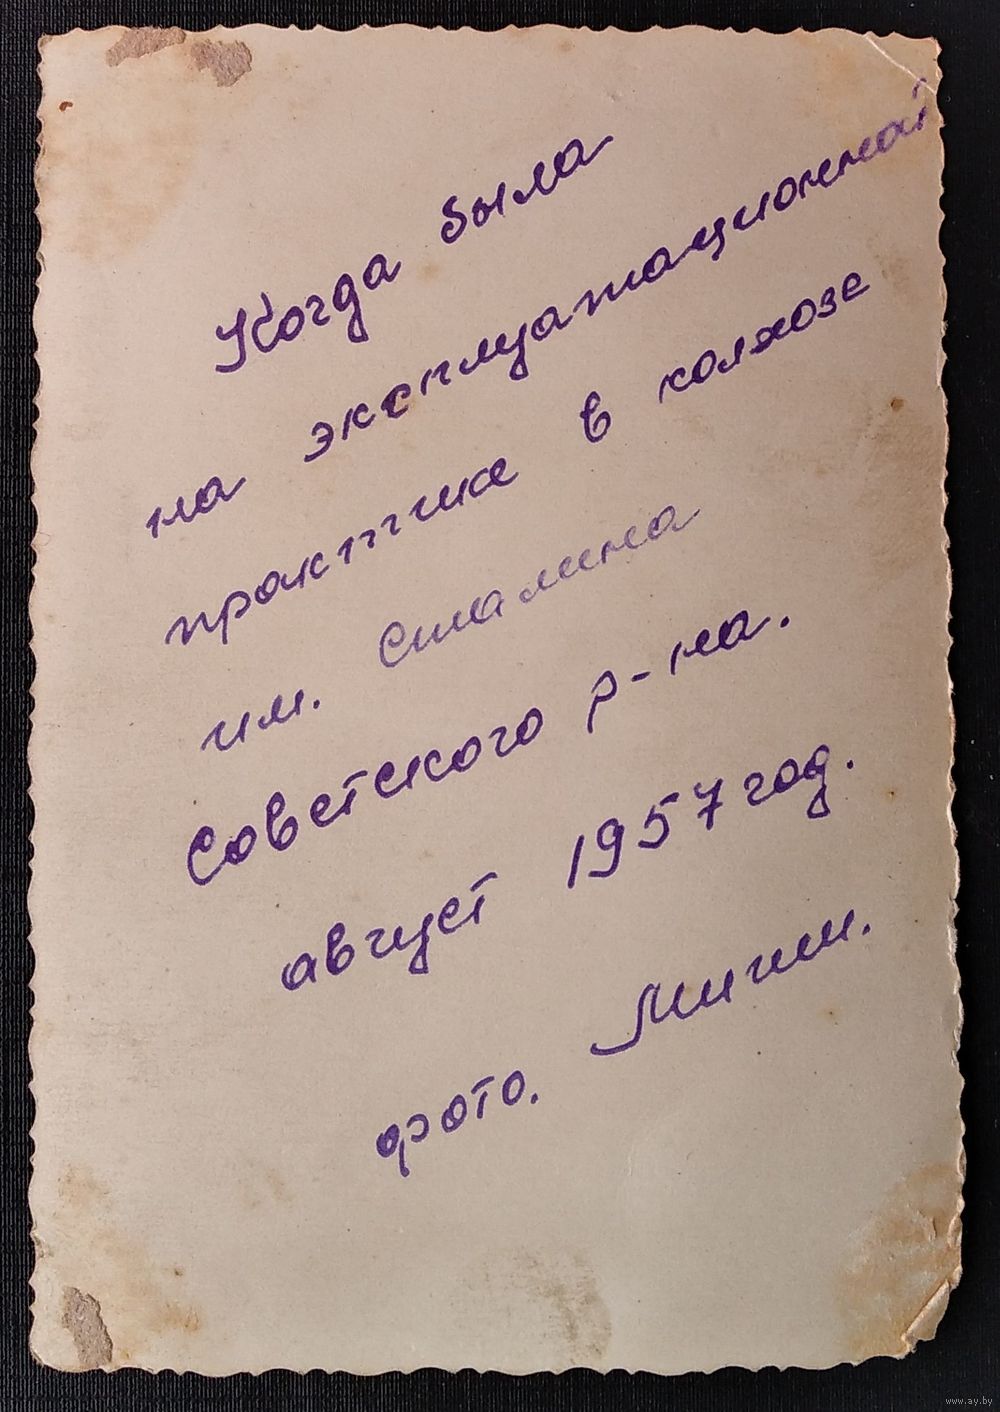 Когда была
на эксплуатационной
практике в колхозе
им. Сталина
Советского р-на.
август 1957 год.
фото.
www.ay.by